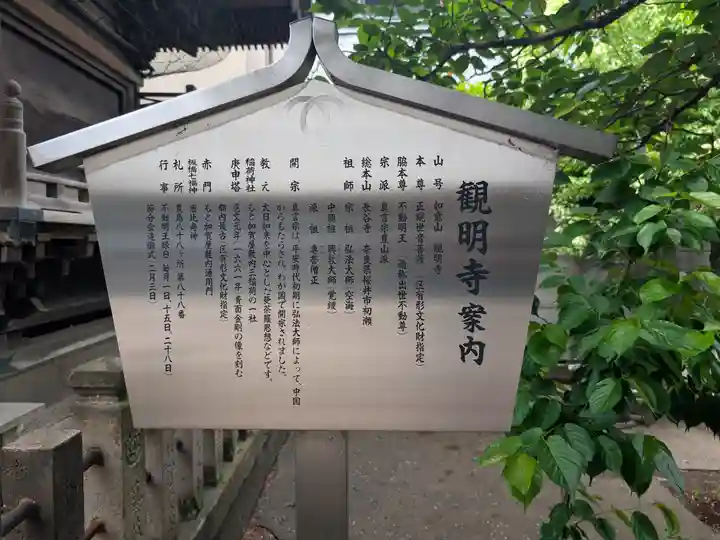 観明寺案内
山号 如意山 観明寺
本尊 正観世音菩薩 (区有形文化財指定)
脇本尊 不動明王 (通称出世不動尊)
宗派 真言宗豊山派
総本山 長谷寺 奈良県桜井市初瀬
祖師 宗祖 弘法大師(空海)
中興祖 興教大師(覚鑁)
派祖 専誉僧正
開宗 真言宗は、平安時代初期に弘法大師によって、中国
からもたらされ、わが国で開宗されました。
教え 大日如来を中心とした曼荼羅思想などです。
稲荷神社 もと加賀屋敷内三稲荷の一社
庚申塔 寛文元年(一六六一年)青面金剛の像を刻む
都内最古(区有形文化財指定)
赤門 もと加賀屋敷内通用門
板橋七福神 恵比寿神
札所 豊島八十八ヶ所 第八十八番
行事 不動明王縁日(毎月一日、十五日、二十八日)
節分会追儺式(二月三日)